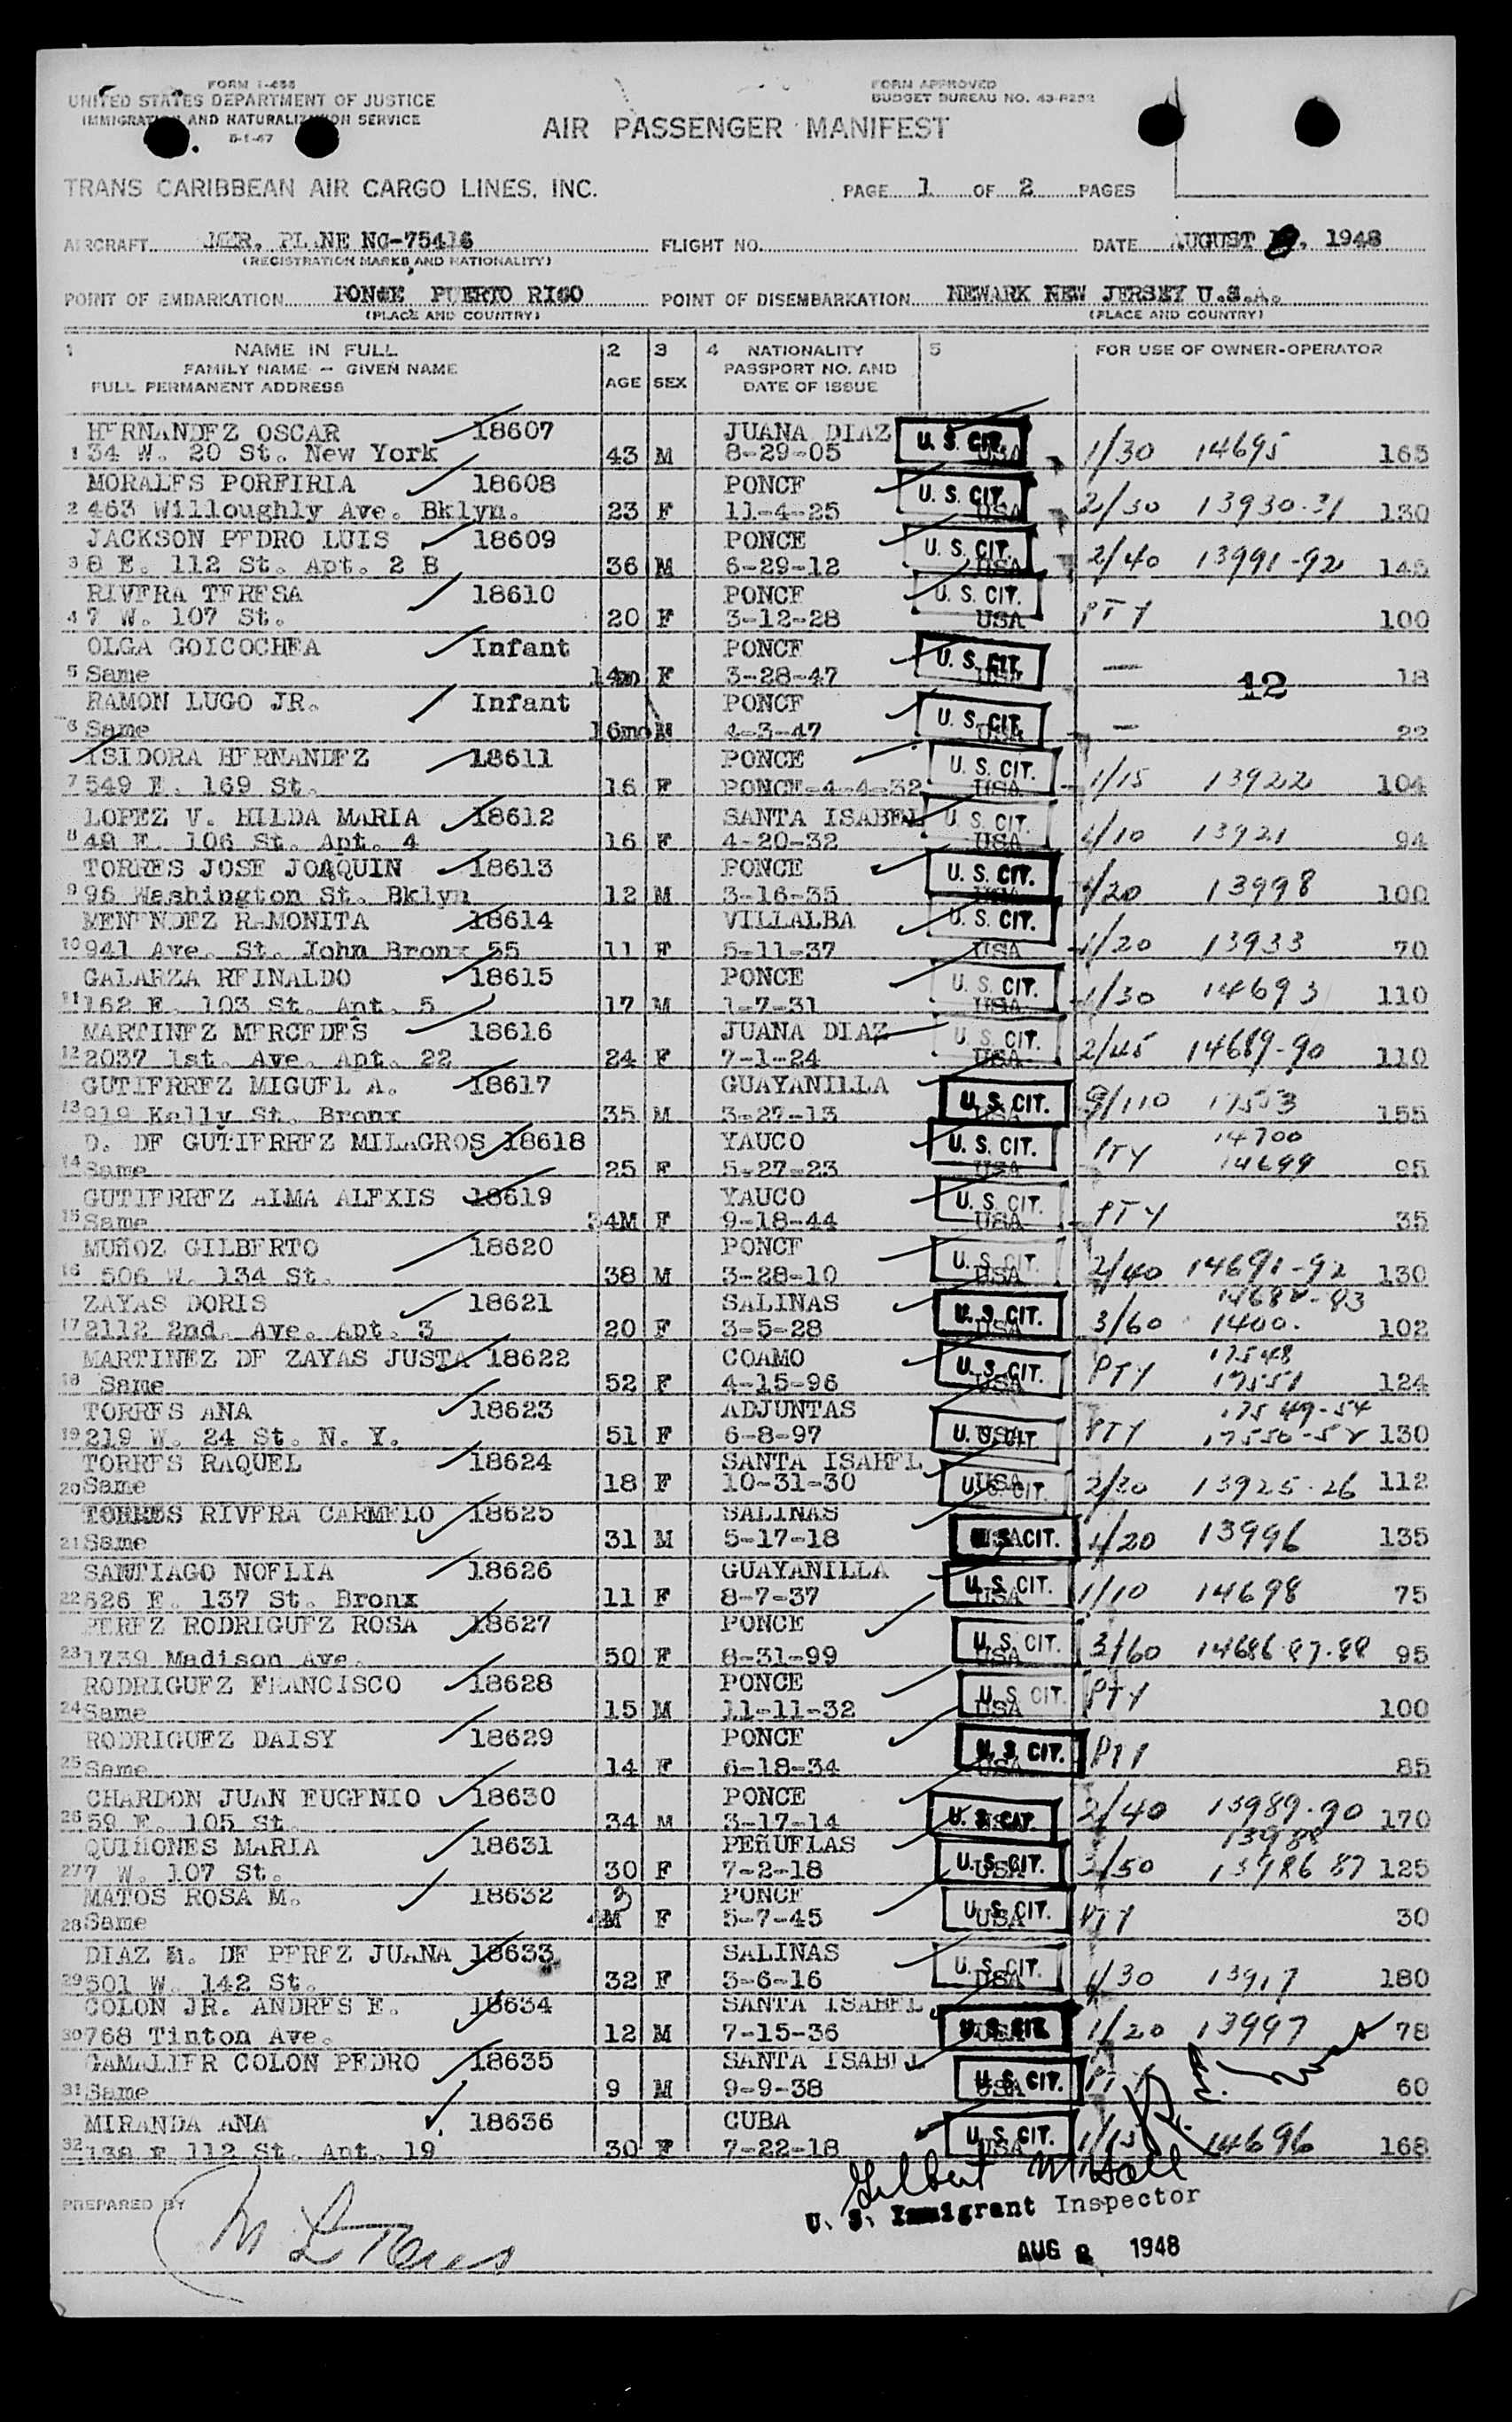 FORM I-466
UNITED STATES DEPARTMENT OF JUSTICE
IMMIGRATION AND NATURALIZATION SERVICE
5-1-47
FORM APPROVED
BUDGET BUREAU NO. 43-R252
AIR PASSENGER MANIFEST
TRANS CARIBBEAN AIR CARGO LINES, INC.
PAGE 1 OF 2 PAGES
AIRCRAFT MER. PLANE NC-75416 FLIGHT NO. DATE AUGUST 1948
(REGISTRATION MARKS AND NATIONALITY)
POINT OF EMBARKATION PONCE PUERTO RICO POINT OF DISEMBARKATION NEWARK NEW JERSEY U.S.A.
(PLACE AND COUNTRY) (PLACE AND COUNTRY)
1 NAME IN FULL 2 3 4 NATIONALITY 5 FOR USE OF OWNER-OPERATOR
FAMILY NAME - GIVEN NAME AGE SEX PASSPORT NO. AND
FULL PERMANENT ADDRESS DATE OF ISSUE
HERNANDEZ OSCAR 18607 JUANA DIAZ U. S. CIT.
1 34 W. 20 St. New York 43 M 8-29-05 USA 1/30 14695 165
MORALES PORFIRIA 18608 PONCE U. S. CIT.
2 463 Willoughly Ave. Bklyn. 23 F 11-4-25 USA 2/50 13930-31 130
JACKSON PEDRO LUIS 18609 PONCE U. S. CIT.
3 8 E. 112 St. Apt. 2 B 36 M 6-29-12 USA 2/40 13991-92 145
RIVERA TERESA 18610 PONCE U. S. CIT.
4 7 W. 107 St. 20 F 3-12-28 USA PTY 100
OLGA GOICOCHEA Infant PONCE U. S. CIT.
5 Same 14m F 3-28-47 USA — 12 18
RAMON LUGO JR. Infant PONCE U. S. CIT.
6 Same 16mo M 4-3-47 USA — 22
ISIDORA HERNANDEZ 18611 PONCE U. S. CIT.
7 549 E. 169 St. 16 F PONCE-4-4-32 USA 1/15 13922 104
LOPEZ V. HILDA MARIA 18612 SANTA ISABEL U. S. CIT.
8 49 E. 106 St. Apt. 4 16 F 4-20-32 USA 1/10 13921 94
TORRES JOSE JOAQUIN 18613 PONCE U. S. CIT.
9 96 Washington St. Bklyn 12 M 3-16-35 USA 1/20 13998 100
MENENDEZ RAMONITA 18614 VILLALBA U. S. CIT.
10 941 Ave. St. John Bronx 55 11 F 5-11-37 USA 1/20 13933 70
GALARZA REINALDO 18615 PONCE U. S. CIT.
11 162 E. 103 St. Apt. 5 17 M 1-7-31 USA 1/30 14693 110
MARTINEZ MERCEDES 18616 JUANA DIAZ U. S. CIT.
12 2037 1st. Ave. Apt. 22 24 F 7-1-24 USA 2/45 14689-90 110
GUTIERREZ MIGUEL A. 18617 GUAYANILLA U. S. CIT.
13 919 Kelly St. Bronx 35 M 3-27-13 USA /110 17553 155
D. DE GUTIERREZ MILAGROS 18618 YAUCO U. S. CIT. 14700
14 Same 25 F 5-27-23 USA PTY 14699 95
GUTIERREZ AIMA ALEXIS 18619 YAUCO U. S. CIT.
15 Same 34M F 9-18-44 USA PTY 35
MUÑOZ GILBERTO 18620 PONCE U. S. CIT.
16 506 W. 134 St. 38 M 3-28-10 USA 2/40 14691-92 130
ZAYAS DORIS 18621 SALINAS U. S. CIT.
17 2112 2nd. Ave. Apt. 3 20 F 3-5-28 USA 3/60 1400. 102
MARTINEZ DE ZAYAS JUSTA 18622 COAMO U. S. CIT. 17548
18 Same 52 F 4-15-96 USA PTY 17551 124
TORRES ANA 18623 ADJUNTAS 17549-54
19 219 W. 24 St. N. Y. 51 F 6-8-97 USA U. S. CIT PTY 17550-52 130
TORRES RAQUEL 18624 SANTA ISABEL
20 Same 18 F 10-31-30 USA U. S. CIT. 2/30 13925-26 112
TORRES RIVERA CARMELO 18625 SALINAS
21 Same 31 M 5-17-18 USA CIT. 1/20 13996 135
SANTIAGO NOELIA 18626 GUAYANILLA U. S. CIT.
22 626 E. 137 St. Bronx 11 F 8-7-37 USA 1/10 14698 75
PEREZ RODRIGUEZ ROSA 18627 PONCE U. S. CIT.
23 1739 Madison Ave. 50 F 8-31-99 USA 3/60 14686-87-88 95
RODRIGUEZ FRANCISCO 18628 PONCE U. S. CIT.
24 Same 15 M 11-11-32 USA PTY 100
RODRIGUEZ DAISY 18629 PONCE U. S. CIT.
25 Same 14 F 6-18-34 USA PTY 85
CHARDON JUAN EUGENIO 18630 PONCE
26 59 E. 105 St. 34 M 3-17-14 U. S. CIT. 2/40 13989-90 170
QUIÑONES MARIA 18631 PEÑUELAS 13988
27 7 W. 107 St. 30 F 7-2-18 USA U. S. CIT. 3/50 13986 87 125
MATOS ROSA M. 18632 3 PONCE U. S. CIT.
28 Same M F 5-7-45 USA PTY 30
DIAZ DE PEREZ JUANA 18633 SALINAS U. S. CIT.
29 501 W. 142 St. 32 F 3-6-16 USA 1/30 13917 180
COLON JR. ANDRES E. 18634 SANTA ISABEL
30 768 Tinton Ave. 12 M 7-15-36 U. S. CIT. 1/20 13997 78
GAMALIER COLON PEDRO 18635 SANTA ISABEL
31 Same 9 M 9-9-38 USA U. S. CIT. PTY 60
MIRANDA ANA 18636 CUBA U. S. CIT.
32 138 E. 112 St. Apt. 19 30 F 7-22-18 USA 1/15 14696 168
Gilbert M Hall
PREPARED BY
U. S. Immigrant Inspector
AUG 8 1948